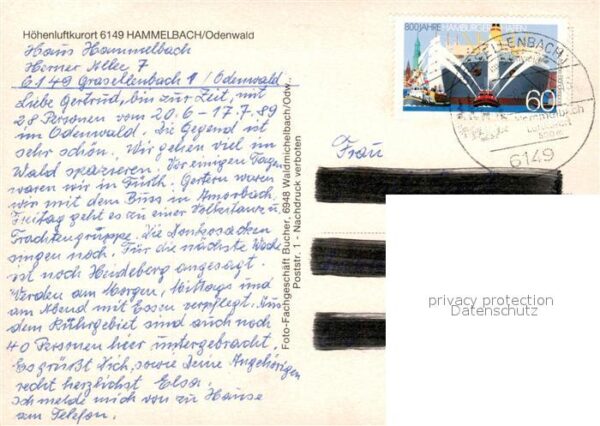 Höhenluftkurort 6149 HAMMELBACH/Odenwald
Haus Hammelbach
Herner Allee 7
6149 Grasellenbach 1/Odenwald
Liebe Gertrud, bin zur Zeit, mit
28 Personen vom 20.6 - 17.7.89
im Odenwald. Die Gegend ist
sehr schön. Wir gehen viel im
Wald spazieren. Vor einigen Tagen
waren wir in Fürth. Gestern waren
wir mit dem Bus in Amorbach,
Freitag geht es zu einer Volkstanz u.
Trachtengruppe. Die Donkosacken
singen noch. Für die nächste Woche
ist noch Heidelberg angesagt.
Werden am Morgen, Mittags und
am Abend mit Essen verpflegt. Aus
dem Ruhrgebiet sind auch noch
40 Personen hier untergebracht.
Es grüßt Dich, sowie Deine Angehörigen
recht herzlichst Elsa.
Schmelde mich von zu Hause
am Telefon.
Foto-Fachgeschäft Bucher, 6948 Waldmichelbach/Odw.,
Poststr. 1 - Nachdruck verboten
800 JAHRE HAMBURGER HAFEN
60
GRASELLENBACH 1
6149
Frau
privacy protection
Datenschutz